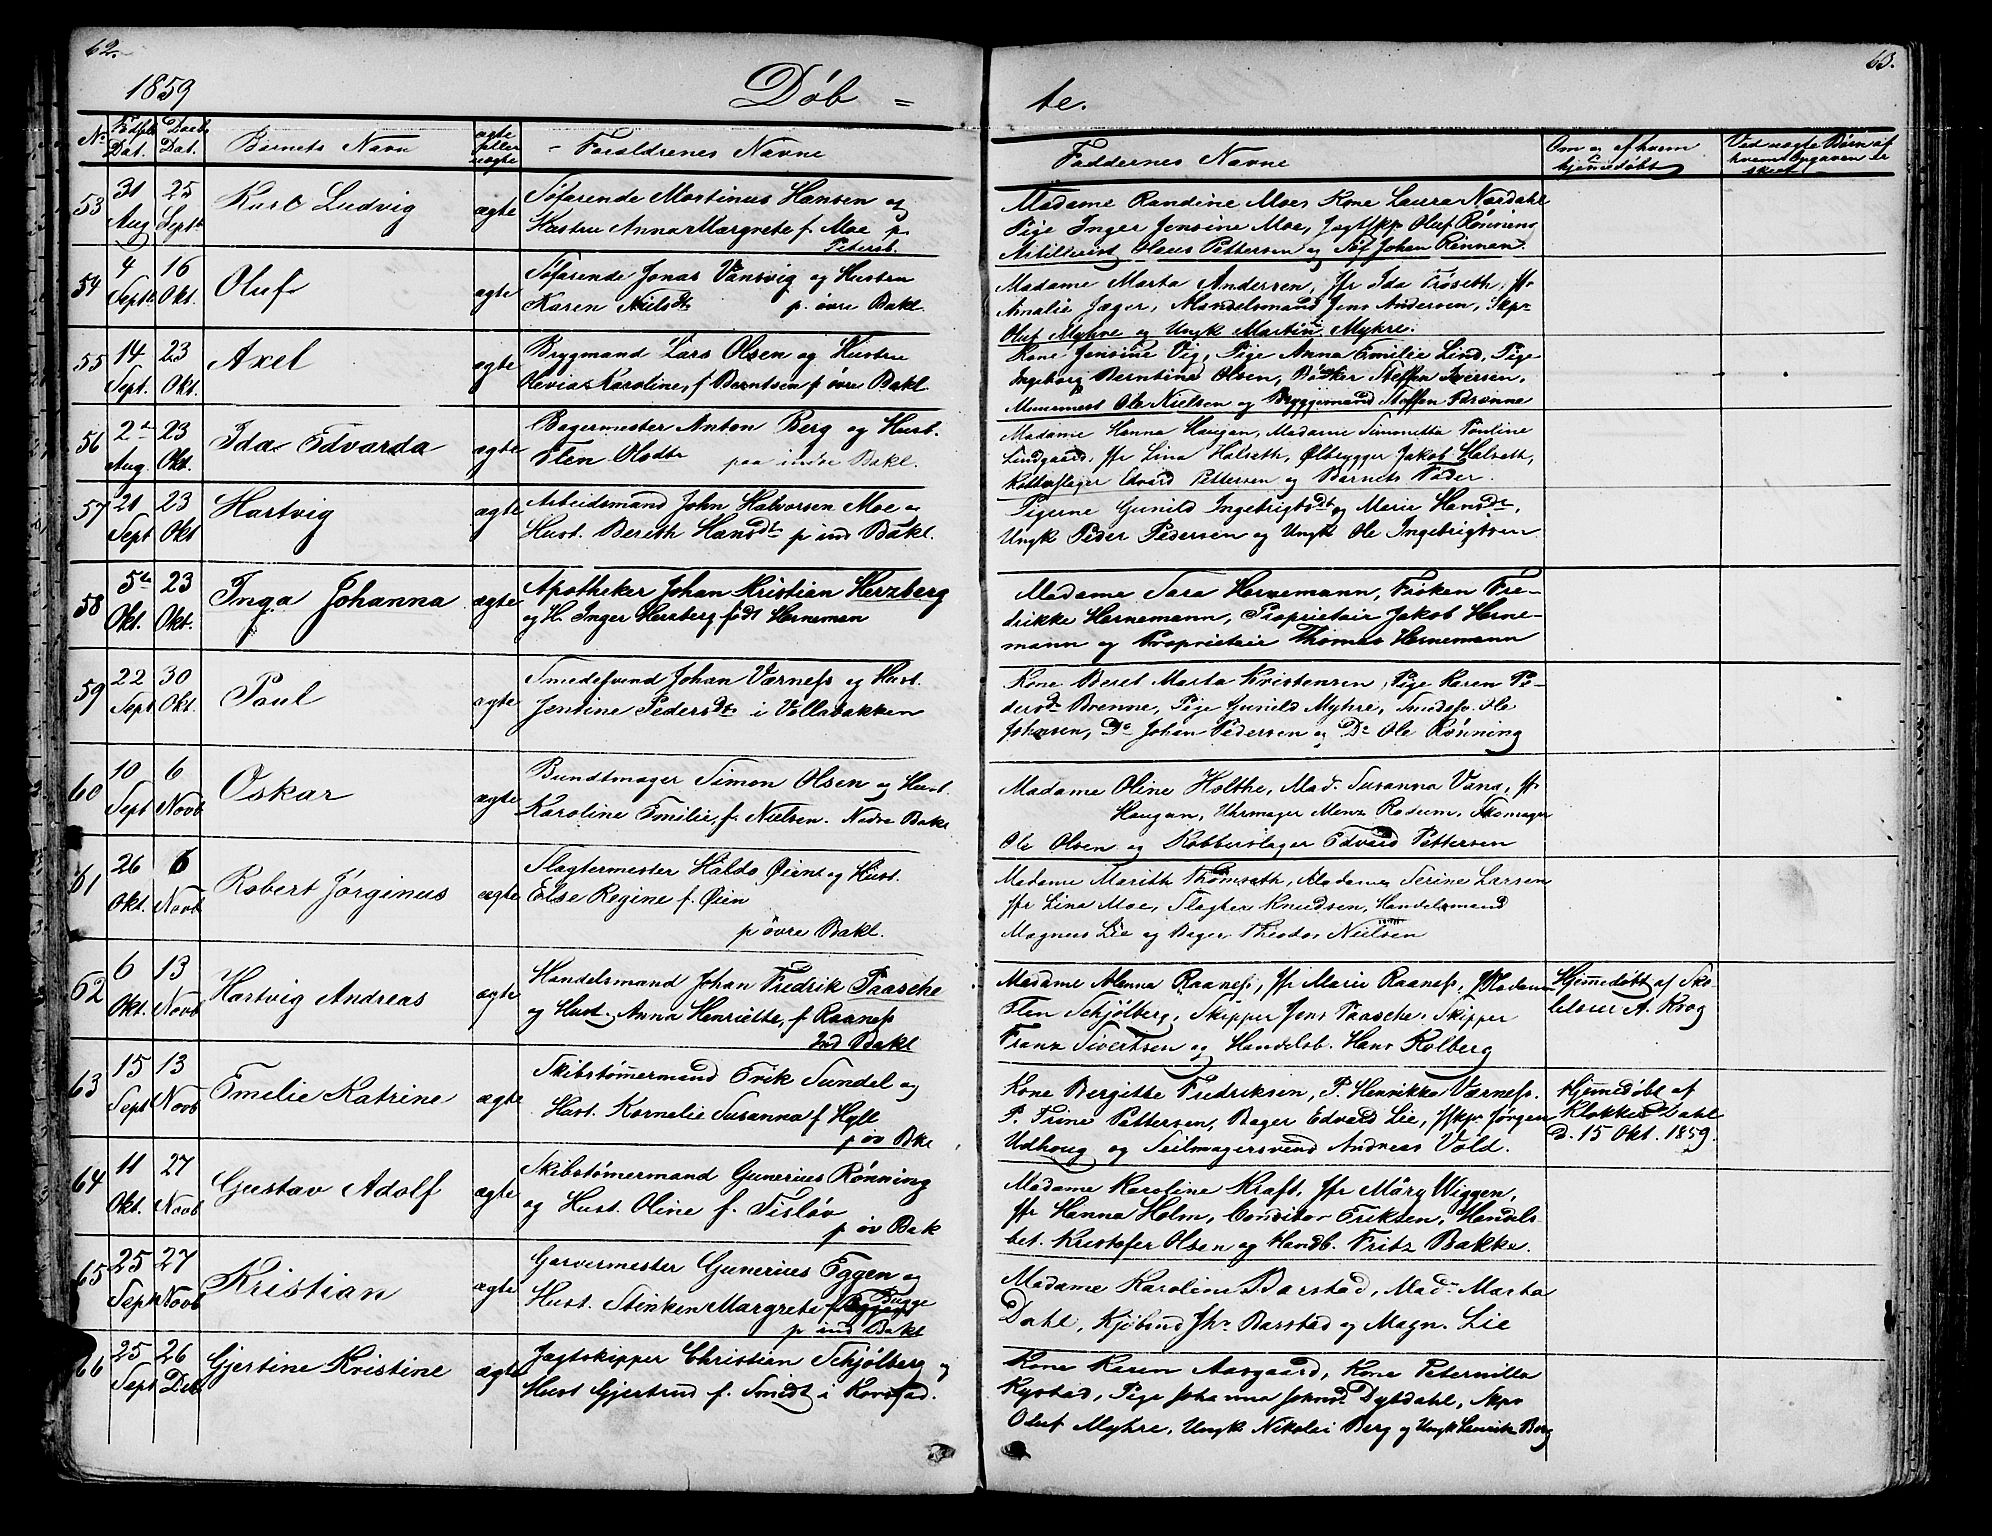 62.
63.
1859
Døb =
te.
No
Fødsels Dat.
Daabs Dat.
Barnets Navn
ægte eller uægte
Forældrenes Navne
Faddernes Navne
Om og af hvem hjemmedøbt
Ved uægte Børn af hvem Opgaven er skeet
53
31 Aug
25 Septb
Karl Ludvig
ægte
Søfarende Martinus Hansen og
Hustru Anna Margrete f. Moe p.
Petersb.
Madame Randine Moe, Kone Laura Nordahl
Pige Inger Jensine Moe, Jagtskp Oluf Rønning
Artillerist Olaus Pettersen og Søf Johan Rønnen.
54
4 Septb
16 Okt.
Oluf
ægte
Søfarende Jonas Vansvig og Hustru
Karen Nielsdt. p. øvre Bakl.
Madame Marta Andersen, Jfr Ida Frøseth, Jfr
Amalie Jager, Handelsmand Jens Andersen, Skpr
Oluf Myhre og Ungk Martin Myhre.
55
14 Sept.
23 Okt.
Axel
ægte
Brygmand Lars Olsen og Hustru
Olevia Karoline, f. Berntsen p. øvre Bakl
Kone Jensine Vig, Pige Anna Emilie Lind, Pige
Ingeborg Berntine Olsen, Bødker Steffen Iversen,
Muurmest Ole Nielsen og Bryggemand Steffen Parønne
56
2den Aug.
23 Okt.
Ida Edvarda
ægte
Bagermester Anton Berg og Hust.
Elen Olsdtr paa indre Bakl.
Madame Hanna Haugan, Madame Simonetta Pouline
Lundgaard, Jfr Lina Halseth, Ølbrygger Jakob Halseth,
Kobberslager Edvard Pettersen og Barnets Fader.
57
21 Sept
23 Okt
Hartvig
ægte
Arbeidsmand John Halvorsen Moe og
Hust. Bereth Hansdt p ind Bakl.
Pigerne Gunild Ingebrigtsdt og Marie Hansdt,
Ungk Peder Pedersen og Ungk Ole Ingebrigtsen
58
5te Okt.
23 Okt.
Inga Johanna
ægte
Apotheker Johan Kristian Herzberg
og H. Inger Herzberg født Horneman
Madame Sara Hornemann, Frøken Fre-
drikke Hornemann, Proprietair Jakob Horne-
mann og Proprietair Thomas Hornemann
59
22 Sept
30 Okt.
Paul
ægte
Smedesvend Johan Værness og Hust.
Jensine Pedersdt. i Vollabakken
Kone Beret Marta Kristensen, Pige Karen Pe-
dersdt Brenne, Pige Gunild Myhre, Smedesv. Ole
Johnsen, Do Johan Pedersen og Do Ole Rønning
60
10 Sept
6 Novb
Oskar
ægte
Bundtmager Simon Olsen og Hust.
Karoline Emilie, f. Nielsen. Nedre Bakl
Madame Oline Holthe, Mad. Susanna Vana, Jfr
Haugan, Uhrmager Menz Rosum, Skomager
Ole Olsen og Kobberslager Edvard Pettersen
61
26 Okt.
6 Novb
Robert Jørginus
ægte
Slagtermester Haldo Øien og Hust.
Else Regine f. Øien
p øvre Bakl.
Madame Marith Thomseth, Madame Serine Larsen
Jfr Lina Moe, Slagter Knudsen, Handelsmand
Magnus Lie og Bager Theodor Nielsen
62
6 Okt.
13 Novb
Hartvig Andreas
ægte
Handelsmand Johan Fredrik Paasche
og Hust. Anna Henriette, f. Raaness
Ind Bakl
Madame Anna Raaness, Jfr Marie Raaness, Madam
Elen Schjølberg, Skipper Jens Paasche, Skipper
Franz Sivertsen og Handelsb. Hans Kolberg
Hjemedøbt af Sko-
lelærer A. Krog
63
15 Sept
13 Novb
Emelie Katrine
ægte
Skibstømermand Erik Sundel og
Hust. Kornelie Susanna f Hyll
p øv Bkl
Kone Bergitte Fredriksen, P. Henrikka Værness.
P. Trine Pettersen, Bager Edvard Lie, Jskpr Jørgen
Udhoug og Seilmagersvend Andreas Vold.
Hjemedøbt af
Klokker Dahl
d. 15 Okt. 1859.
64
11 Okt.
27 Novb
Gustav Adolf
ægte
Skibstømermand Gunerius Rønning
og Hust. Oline f. Fisløv
p øv Bak
Madame Karoline Kraft, Jfr Mary Wiggen,
Jfr Hanna Holm, Conditor Eriksen, Handels-
bet. Kristofer Olsen og Handb. Fritz Bakke.
65
25 Sept
27 Novb
Kristian
ægte
Garvermester Gunerius Eggen og
Hust. Stinken Margrete f. Bugge
p ind Bakl
Madame Karoline Barstad, Mad. Marta
Dahl, Kjøbmd Jh. Barstad og Magn. Lie
66
25 Sept
26 Deb
Gjertine Kristine
ægte
Jagtskipper Christian Schjølberg og
Hust Gjertrud f. Smidt i Korsfad.
Kone Karen Aasgaard, Kone Peternilla
Rystad, Pige Johanna Johnsd. Dybdahl, Skpr
Oluf Myhre, Ungk Nikolai Berg og Ungk Henrik Berg